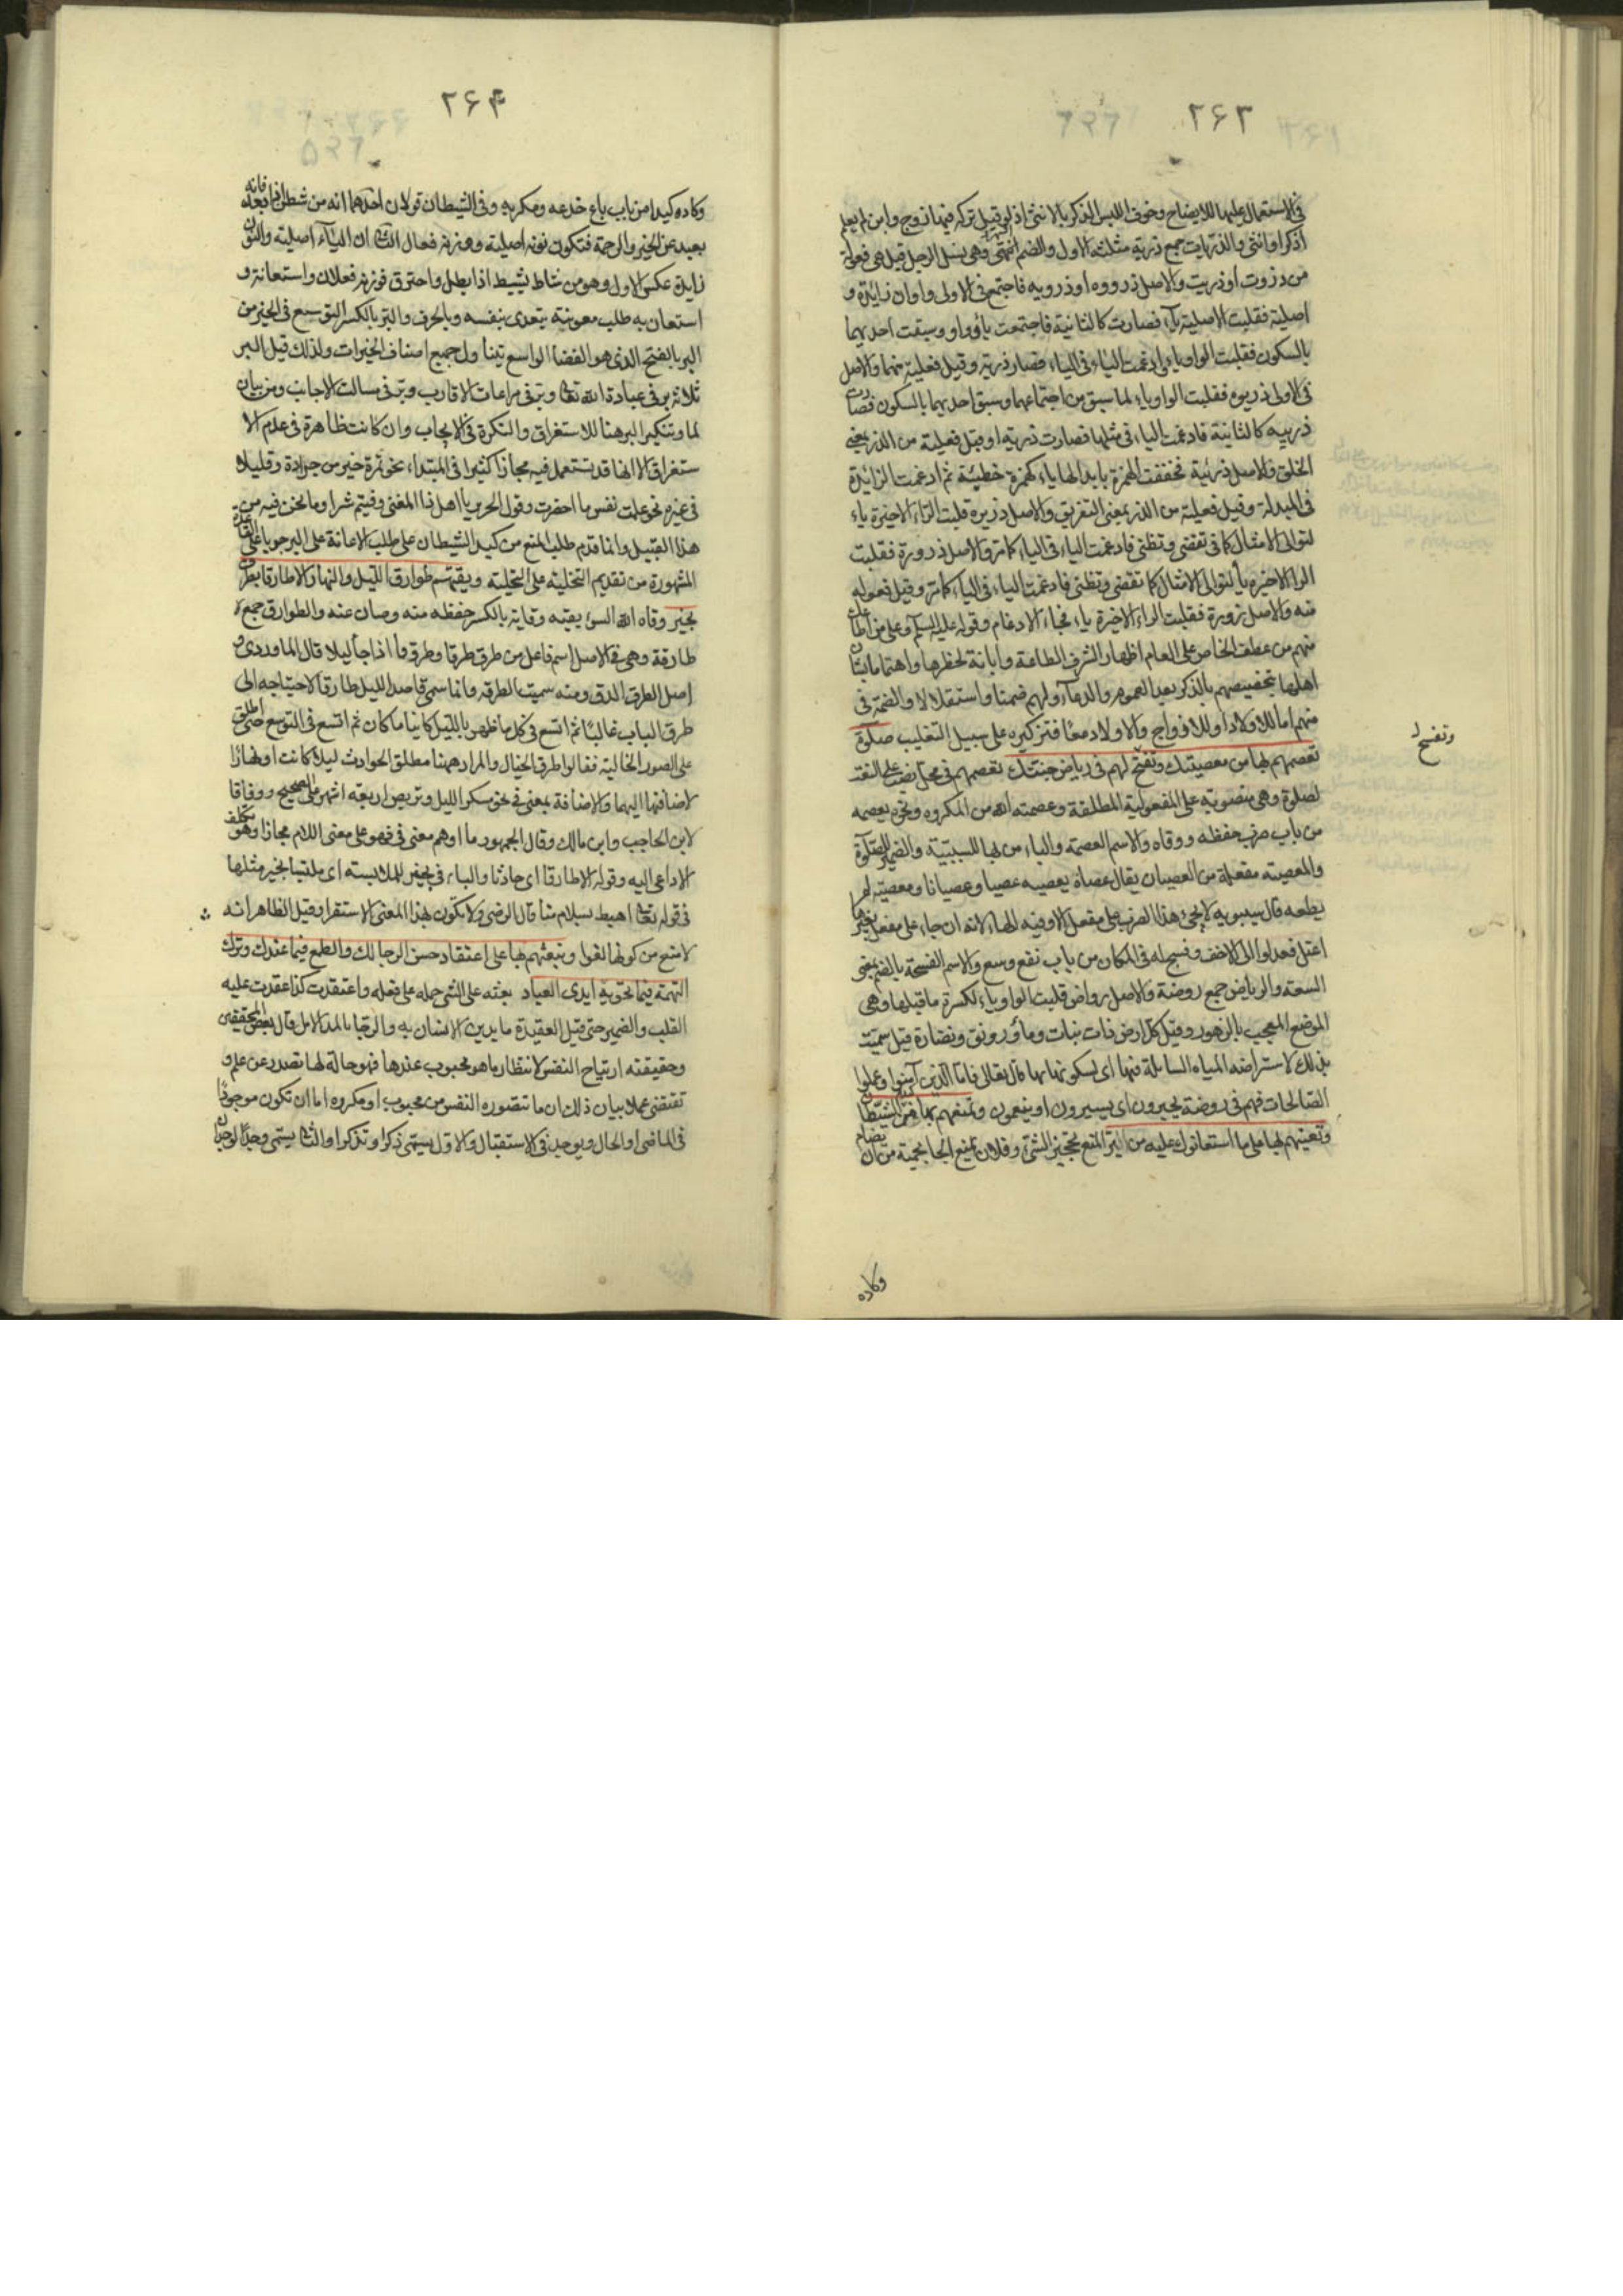 ٢۶٣
فى الاستعمال عليها للايضاح وخوف اللبس الذكر بالانثى اذ لو قيل تركه فيها زوج وابن لم يعلم
اذكر او انثى والذريات جمع ذرية مثلثة الاول والضم اشهر وهى نسل الرجل قيل هى فعولة
من ذروت او ذريت والاصل ذرووه او ذرويه فاجتمع فى الاولى واوان زايدة و
اصلية فقلبت الاصلية ياء فصارت كالثانية فاجتمعت ياء وواو وسبقت احديهما
بالسكون فقلبت الواو ياء وادغمت الياء فى الياء فصار ذرية وقيل فعلية منهما والاصل
فى الاولى ذريوه فقلبت الواو ياء لما سبق من اجتماعهما وسبق احديهما بالسكون فصارت
ذرييه كالثانية فادغمت الياء فى مثلها فصارت ذرية او قيل فعيلة من الذرء بمعنى
الخلق والاصل ذريئة فخففت الهمزة بابدالها ياء كهمزة خطيئة ثم ادغمت الزائدة
فى المبدلة وقيل فعيلة من الذر بمعنى التفريق والاصل ذريره قلبت الراء الاخيرة ياء
لتوالى الامثال كما فى تقضى وتظنى فادغمت الياء فى الياء كما مر والاصل ذرورة فقلبت
الراء الاخيرة ياء لتوالى الامثال كما تقضى وتظنى فادغمت الياء فى الياء كما مر وقيل فعوله
منه والاصل ذرورة فقلبت الراء الاخيرة ياء فجاء الادغام وقوله عليه السلم وعلى من اطاعك
منهم من عطف الخاص على العام اظهار الشرف الطاعة وابانة لخطرها واهتماما بشان
اهلها بتخصيصهم بالذكر بعد العموم والدعاء لهم ضمنا واستقلالا والضمة فى
منهم اما للاولاد او للازواج والاولاد معا فتذكيره على سبيل التغليب صلوة
تعصمهم بها من معصيتك وتفسح لهم فى رياض جنتك تعصمهم فى محل نصب على النعت
وتفسح
لصلوة وهى منصوبة على المفعولية المطلقة وعصمته الله من المكروه ونحوه يعصمه
من باب ضرب حفظه ووقاه والاسم العصمة والباء من بها للسببية والضمير للصلوة
والمعصية مفعلة من العصيان يقال عصاه يعصيه عصيا وعصيانا ومعصية لم
يطعه قال سيبويه لا يجئ هذا الضرب على مفعل الا وفيه الهاء لانه ان جاء على مفعل بغيرها
اعتل فعدلوا الى الاخف وفسح له فى المكان من باب نفع وسع والاسم الفسحة بالضم بمعنى
السعة والرياض جمع روضة والاصل رواض قلبت الواو ياء لكسرة ما قبلها وهى
الموضع المعجب بالزهور وقيل كل ارض ذات نبات وماء ورونق ونضارة قيل سميت
بذلك لاستراضه المياه السائلة فيها اى لسكونها بها قال تعالى فاما الذين آمنوا وعملوا
الصالحات فهم فى روضة يحبرون اى يسيرون او ينعمون وتمنعهم بها من كيد الشيطان
وتعينهم بها على ما استعانوك عليه من البر المنع تحجيز الشئ وفلان يمنع الجار يحميه من ان يضام
وكاده
٢۶۴
وكاده كيدا من باب باع خدعه ومكر به وفى الشيطان قولان احدهما انه من شطن اذا بعد فانه
بعيد عن الخير والرحمة فتكون نونه اصلية ووزنه فعال الثانى ان الياء اصلية والنون
زايدة عكس الاول وهو من شاط يشيط اذا بطل واحترق فوزنه فعلان واستعانه و
استعان به طلب معونته يتعدى بنفسه وبالحرف والبر بالكسر التوسع فى الخير من
البر بالفتح الذى هو الفضا الواسع يتناول جميع اصناف الخيرات ولذلك قيل البر
ثلاثة بر فى عبادة الله تعالى وبر فى مراعات الاقارب وبر فى مسالت الاجانب ومن بيان
لما وتنكير البر هنا للاستغراق والنكرة فى الايجاب وان كانت ظاهرة فى عدم الا
ستغراق الا انها قد تستعمل فيه مجازا كثيرا فى المبتداء نحو تمرة خير من جرادة وقليلا
فى غيره نحو علمت نفس ما احضرت وقول الحرير يا اهل ذا المغنى وقيتم شرا وما نحن فيه من
هذا القبيل وانما قدم طلب المنع من كيد الشيطان على طلب الاعانة على البر جريا على القاعدة
المشهورة من تقديم التخلية على التحلية ويقيهم طوارق الليل والنهار الا طارقا يطرق
بخير وقاه الله السوء يقيه وقاية بالكسر حفظه منه وصان عنه والطوارق جمع
طارقة وهى فى الاصل اسم فاعل من طرق طرقا وطروقا اذا جاء ليلا قال الماوردى و
اصل الطرق الدق ومنه سميت المطرقة وانما سمى قاصد الليل طارقا لاحتياجه الى
طرق الباب غالبا ثم اتسع فى كل ما ظهر بالليل كائنا ما كان ثم اتسع فى التوسع حتى اطلق
على الصور الخالية فقالوا طرق الخيال والمراد ههنا مطلق الحوادث ليلا كانت او نهارا
لاضافتها اليهما والاضافة بمعنى فى نحو مكر الليل وتربص اربعة اشهر على الصحيح ووفاقا
لابن الحاجب وابن مالك وقال الجمهور ما اوهم معنى فى فهو على معنى اللام مجازا وهو تكلف
لا داعى اليه وقوله الا طارقا اى حادثا والباء فى بخير للملابسة اى ملتبسا بخير مثلها
فى قوله تعالى اهبط بسلام منا قال الرضى ولا تكون بهذا المعنى الا مستقرا وقيل الظاهر انه
لا منع من كونها لغوا وتبعثهم بها على اعتقاد حسن الرجا لك والطمع فيما عندك وترك
التهمة فيما تحويه ايدى العباد بعثه على الشئ حمله على فعله واعتقدت كذا عقدت عليه
القلب والضمير حتى قيل العقيدة ما يدين الانسان به والرجاء بالمد الامل قال بعض المحققين
وحقيقته ارتياح النفس لانتظار ما هو محبوب عندها فهو حالة لها تصدر عن علم و
تقتضى عملا بيان ذلك ان ما تتصوره النفس من محبوب او مكروه اما ان تكون موجودا
فى الماضى او الحال ويوجد فى الاستقبال والاول يسمى ذكرا وتذكرا والثانى يسمى وجدا لوجدان